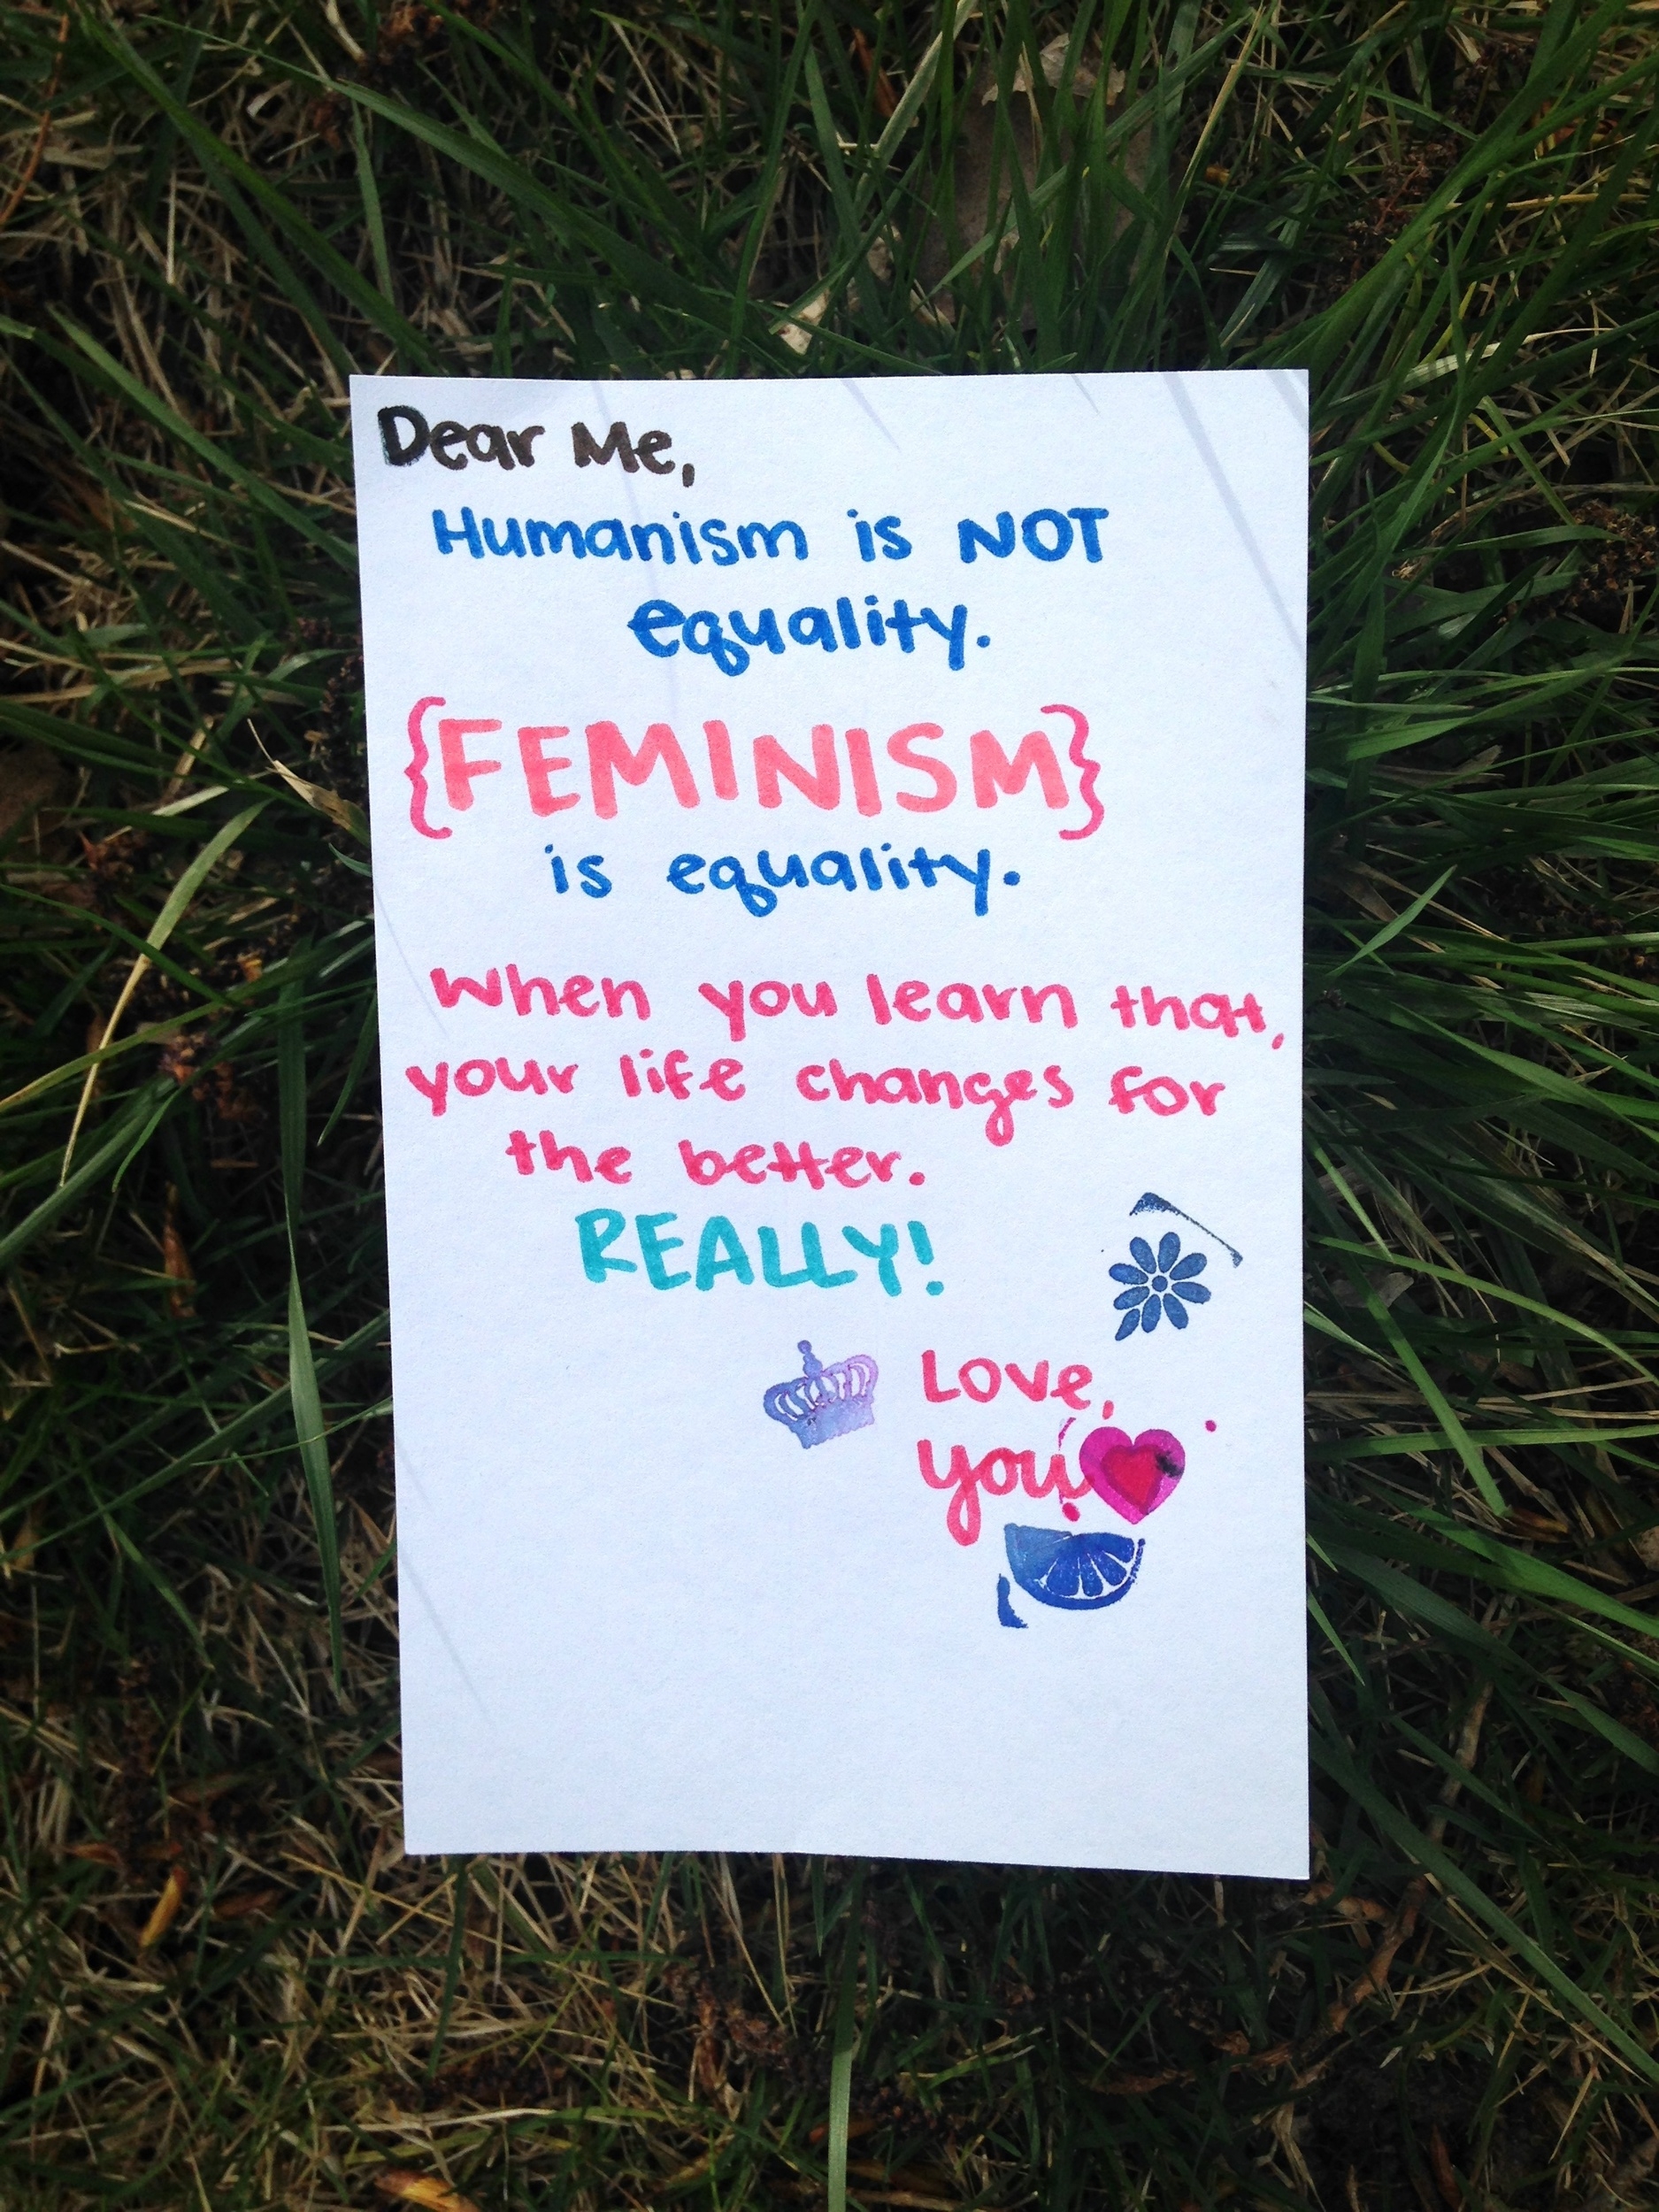 Dear Me,
Humanism is NOT
equality.
{FEMINISM}
is equality.
When you learn that,
your life changes for
the better.
REALLY!
Love,
you!